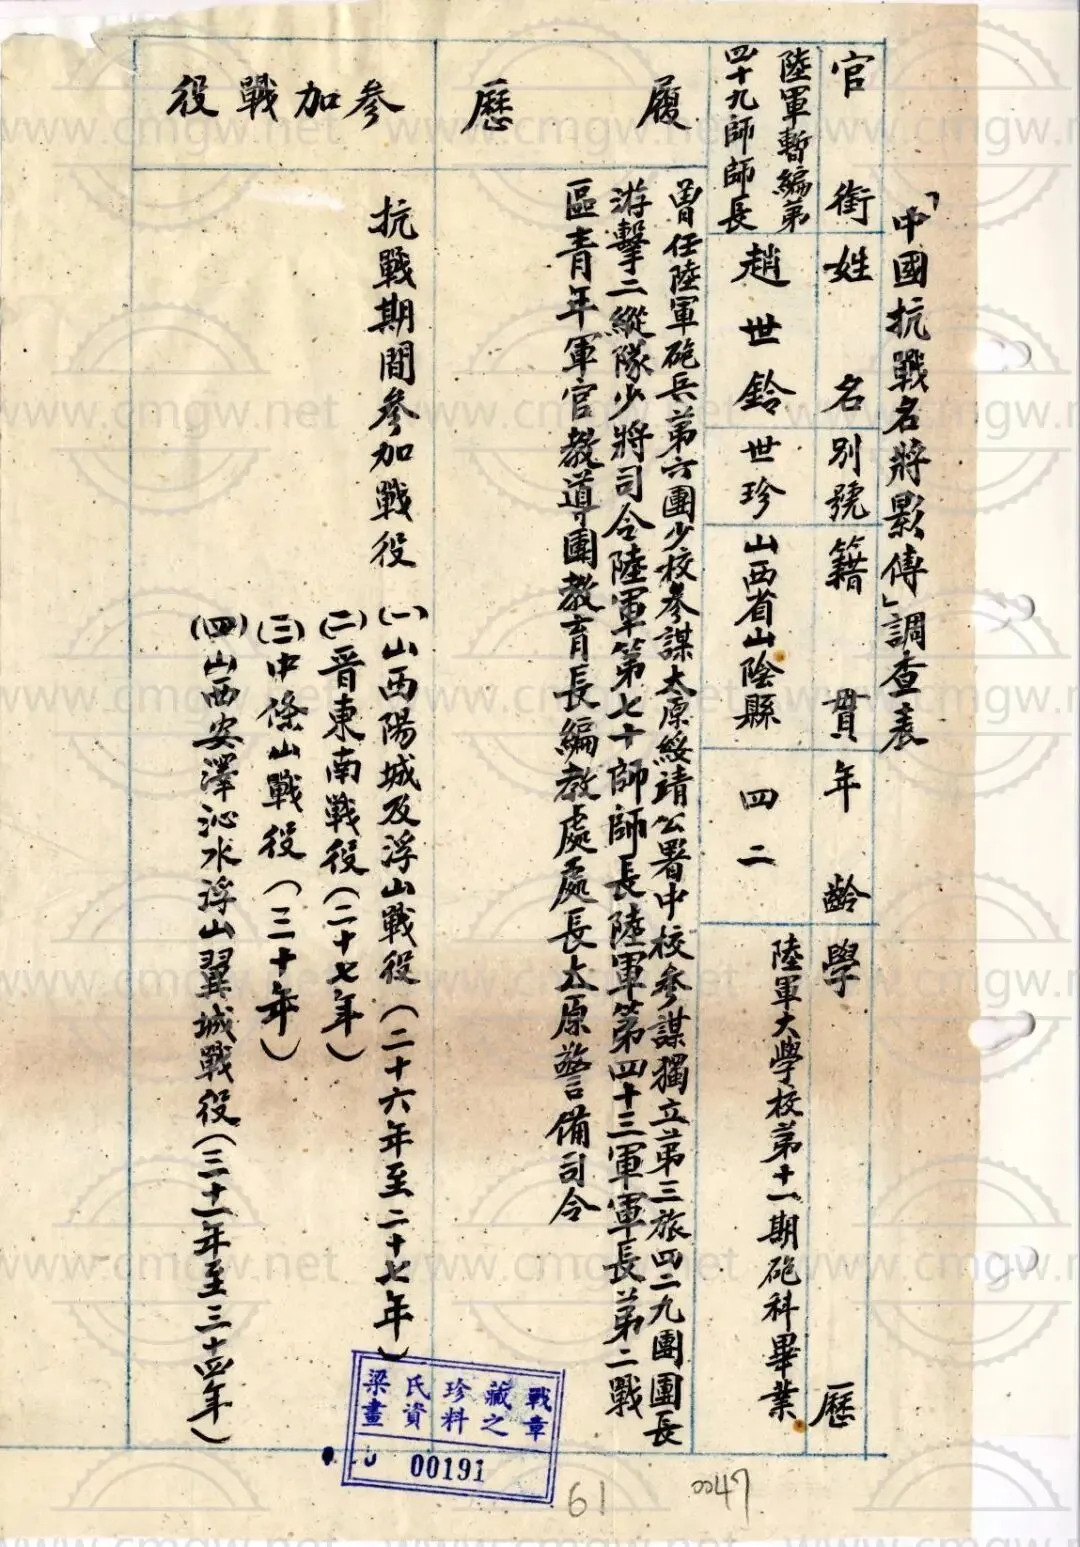 「中國抗戰名將影傳」調查表
官銜
姓名
別號
籍貫
年齡
學歷
陸軍暫編第
四十九師師長
趙世鈴
世珍
山西省山陰縣
四二
陸軍大學校第十一期砲科畢業
履歷
曾任陸軍砲兵第六團少校參謀太原綏靖公署中校參謀獨立第三旅四二九團團長
游擊二縱隊少將司令陸軍第七十師師長陸軍第四十三軍軍長第二戰
區青年軍官教導團教育長編教處處長太原警備司令
參加戰役
抗戰期間參加戰役
(一)山西陽城及浮山戰役(二十六年至二十七年)
(二)晉東南戰役(二十七年)
(三)中條山戰役(三十年)
(四)山西安澤沁水浮山翼城戰役(三十一年至三十四年)
戰章
藏之
珍料
氏資
梁畫
00191
61
0047
www.cmgw.net